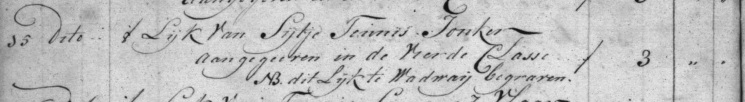 15 dito .. 't Lijk van Sijtje Teunis Jonker
aangegeeven in de Vierde Classe / 3 " .
NB. dit Lijk te Wadwaij begraven.